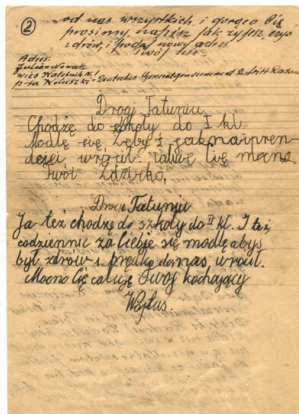 ②
od nas wszystkich i gorąco Cię
prosimy napisz jak żyjesz, czyś
zdrów i podaj nowy adres
Twój
Adres:
Nowak
wieś № 1
p-ta Koluszki - Generalgouvernement Distrikt Radom
Drogi Tatuniu
Chodzę do szkoły do I kl
Modlę się, żebyś jaknajpren-
dzej wrócił. Całuję Cię mocno
twoi
Drogi Tatuniu
Ja też chodzę do szkoły do II kl. I też
codziennie za Ciebie się modlę abyś
był zdrów i prędko do nas wrócił.
Mocno Cię całuję Twój kochający
Wojtuś.